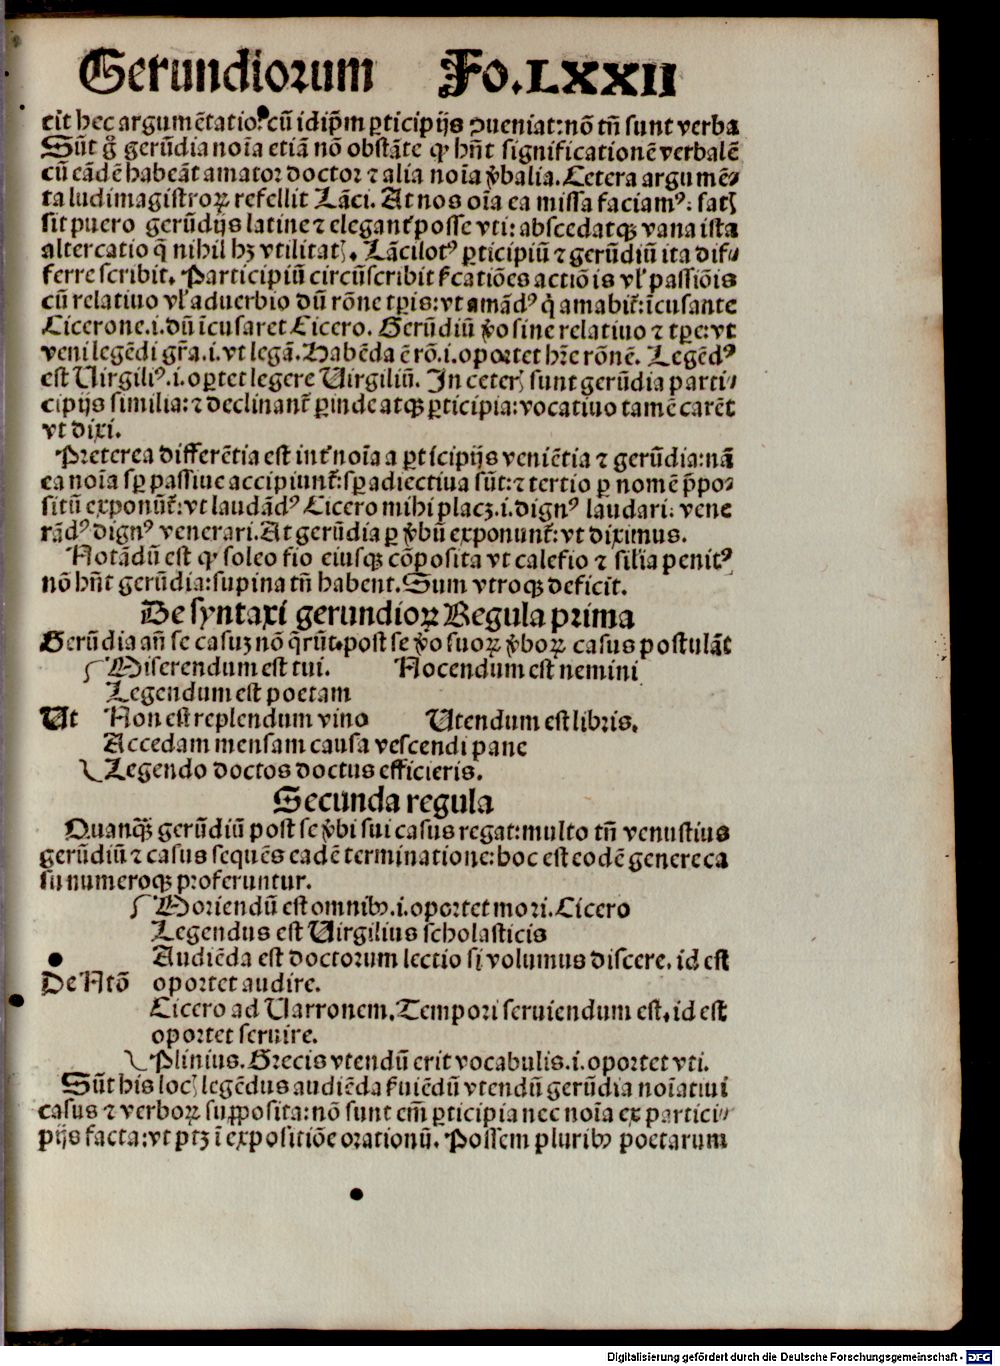 Gerundiorum Fo.LXXII
cit hec argumētatio? cū idip̄m ꝑticipijs ↄueniat: nō tn̄ sunt verba
Sūt g̊ gerūdia noīa etiā nō obstāte ꝙ hn̄t significationē verbalē
cū eādē habeāt amator doctor ⁊ alia noīa v̓balia. Cetera argumē⸗
ta ludimagistroꝝ refellit Lāci. At nos oīa ea missa faciamꝰ: satꝭ
sit puero gerūdijs latine ⁊ elegant̓ posse vti: abscedatqꝫ vana ista
altercatio q̄ nihil hꝫ vtilitatꝭ. Lācilotꝰ ꝑticipiū ⁊ gerūdiū ita dif⸗
ferre scribit. Participiū circūscribit ſ̓catiōes actiōis vl̓ passiōis
cū relatiuo vl̓ aduerbio dū rōne tꝑis: vt amādꝰ q̇ amabit̓: īcusante
Cicerone .i. dū īcusaret Cicero. Gerūdiū v̓o sine relatiuo ⁊ tꝑe: vt
veni legēdi gr̄a .i. vt legā. Habēda ē rō .i. oportet hr̄e rōnē. Legēdꝰ
est Uirgiliꝰ .i. oꝑtet legere Uirgiliū. In ceterꝭ sunt gerūdia parti⸗
cipijs similia: ⁊ declinant̓ ꝑinde atqꝫ ꝑticipia: vocatiuo tamē carēt
vt dixi.
Preterea differētia est int̓ noīa a ꝑticipijs veniētia ⁊ gerūdia: nā
ea noīa sꝑ passiue accipiunt̓: sꝑ adiectiua sūt: ⁊ tertio ꝑ nomē p̄po⸗
sitū exponūt̓: vt laudādꝰ Cicero mihi placꝫ .i. dignꝰ laudari: vene
rādꝰ dignꝰ venerari. At gerūdia ꝑ v̓bū exponunt̓: vt diximus.
Notādū est ꝙ soleo fio eiusqꝫ cōposita vt calefio ⁊ silīa penitꝰ
nō hn̄t gerūdia: supina tn̄ habent. Sum vtroqꝫ deficit.
De syntaxi gerundioꝝ Regula prima
Gerūdia an̄ se casuꝫ nō q̄rūt. post se v̓o suoꝝ v̓boꝝ casus postulāt
Miserendum est tui. Nocendum est nemini
Legendum est poetam
Ut Non est replendum vino Utendum est libris.
Accedam mensam causa vescendi pane
Legendo doctos doctus efficieris.
Secunda regula
Quanqꝫ gerūdiū post se v̓bi sui casus regat: multo tn̄ venustius
gerūdiū ⁊ casus sequēs eadē terminatione: hoc est eodē genere ca
su numeroqꝫ proferuntur.
Moriendū est omnibꝰ .i. oportet mori. Cicero
Legendus est Uirgilius scholasticis
Audiēda est doctorum lectio si volumus discere. id est
De Ntō oportet audire.
Cicero ad Uarronem. Tempori seruiendum est. id est
oportet seruire.
Plinius. Grecis vtendū erit vocabulis .i. oportet vti.
Sūt his locꝭ legēdus audiēda ſ̓uiēdū vtendū gerūdia noīatiui
casus ⁊ verboꝝ supposita: nō sunt em̄ ꝑticipia nec noīa ex partici⸗
pijs facta: vt ptꝫ ī expositiōe orationū. Possem pluribꝰ poetarum
Digitalisierung gefördert durch die Deutsche Forschungsgemeinschaft - DFG